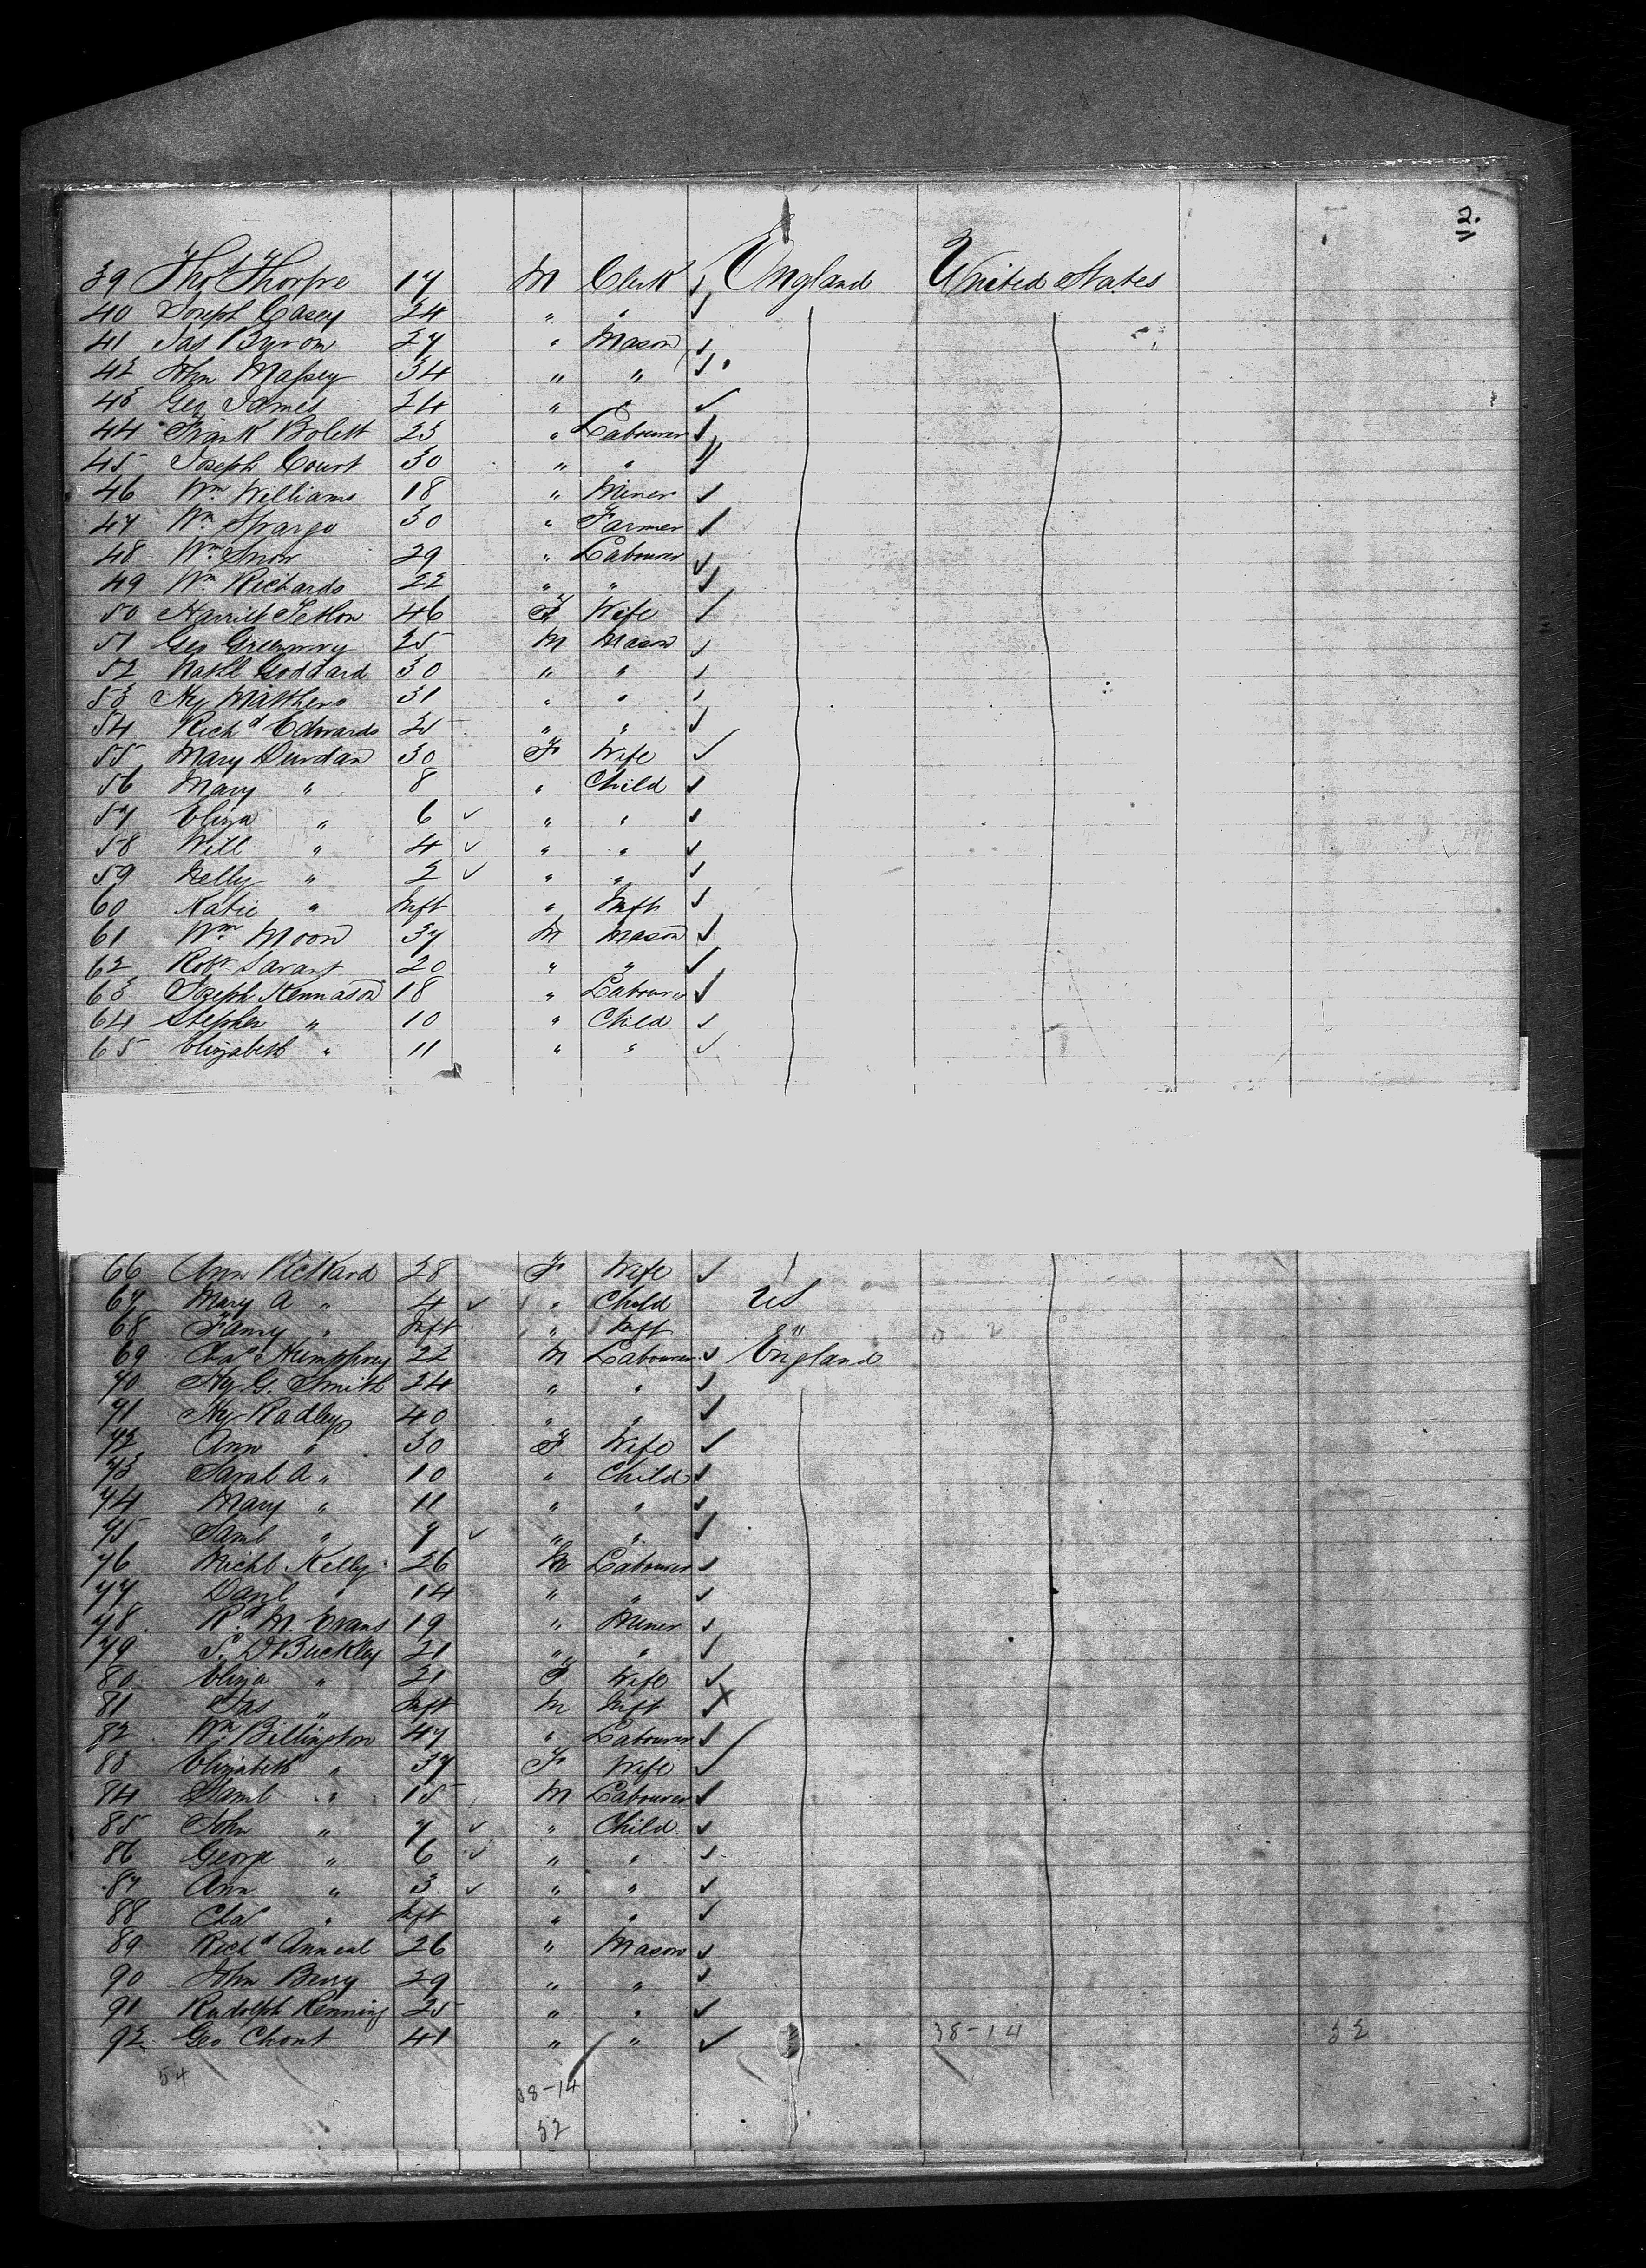 2.
39 Thos Thorpe 17 M Clerk England United States
40 Joseph Casey 24 " "
41 Jas Byrom 27 " Mason
42 John Massey 34 " "
43 Geo James 24 " "
44 Frank Bolett 23 " Labourer
45 Joseph Court 30 " "
46 Wm Williams 18 " Miner
47 Wm Spargo 30 " Farmer
48 Wm Snow 29 " Labourer
49 Wm Richards 22 " "
50 Harriet 46 F Wife
51 Geo Greenway 25 M Mason
52 Nathl Goddard 30 " "
53 Hy Matthews 31 " "
54 Richd Edwards 25 " "
55 Mary Durdan 30 F Wife
56 Mary " 8 " Child
57 Eliza " 6 " "
58 Will " 4 " "
59 Nelly " 2 " "
60 Katie " Inft " Inft
61 Wm Moon 37 M Mason
62 Robt Savant 20 " "
63 Joseph Kennason 18 " Labourer
64 Stephen " 10 " Child
65 Elizabeth " 11 " "
66 Ann Rickard 28 F Wife
67 Mary A " 4 " Child US
68 Fanny " Inft " Inft "
69 Chas Humphrey 22 M Labourer England
70 Hy G. Smith 24 " "
71 Hy Radley 40 " "
72 Ann " 30 F Wife
73 Sarah A " 10 " Child
74 Mary " 11 " "
75 Saml " 7 " "
76 Michl Kelly 26 M Labourer
77 Danl " 14 " "
78 Rd M. Evans 19 " Miner
79 S. D Buckley 21 " "
80 Eliza " 21 F Wife
81 Jas " Inft M Inft
82 Wm Billington 47 " Labourer
83 Elizabeth " 37 F Wife
84 Saml " 15 M Labourer
85 John " 7 " Child
86 George " 6 " "
87 Ann " 3 " "
88 Chas " Inft " "
89 Richd Anneal 26 " Mason
90 John Berry 29 " "
91 Rudolph Renning 25 " "
92 Geo Chont 41 " " 38-14 52
54 38-14
52